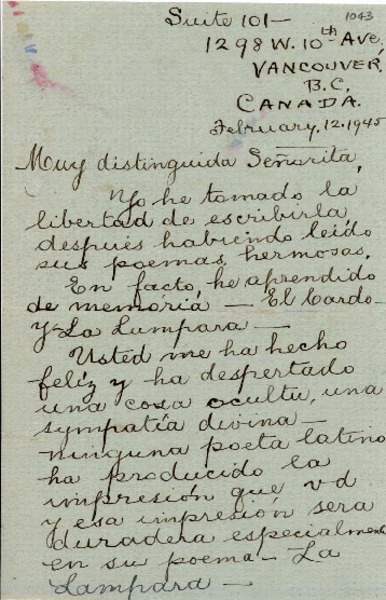 1043
Suite 101—
1298 W. 10th Ave,
VANCOUVER,
B.C,
CANADA.
February, 12. 1945
Muy distinguida Señorita,
Yo he tomado la
libertad de escribirla,
despues habiendo leído
sus poemas hermosas.
En facto, he aprendido
de memória — El Cardo—
y La Lumpara —
Usted me ha hecho
felíz y ha despertado
una cosa ocultu, una
sympatía divina—
ninguna poeta latino
ha producido la
impresión que vd
y esa impresión sera
duradera especialmente
en su poema — La
Lampara —